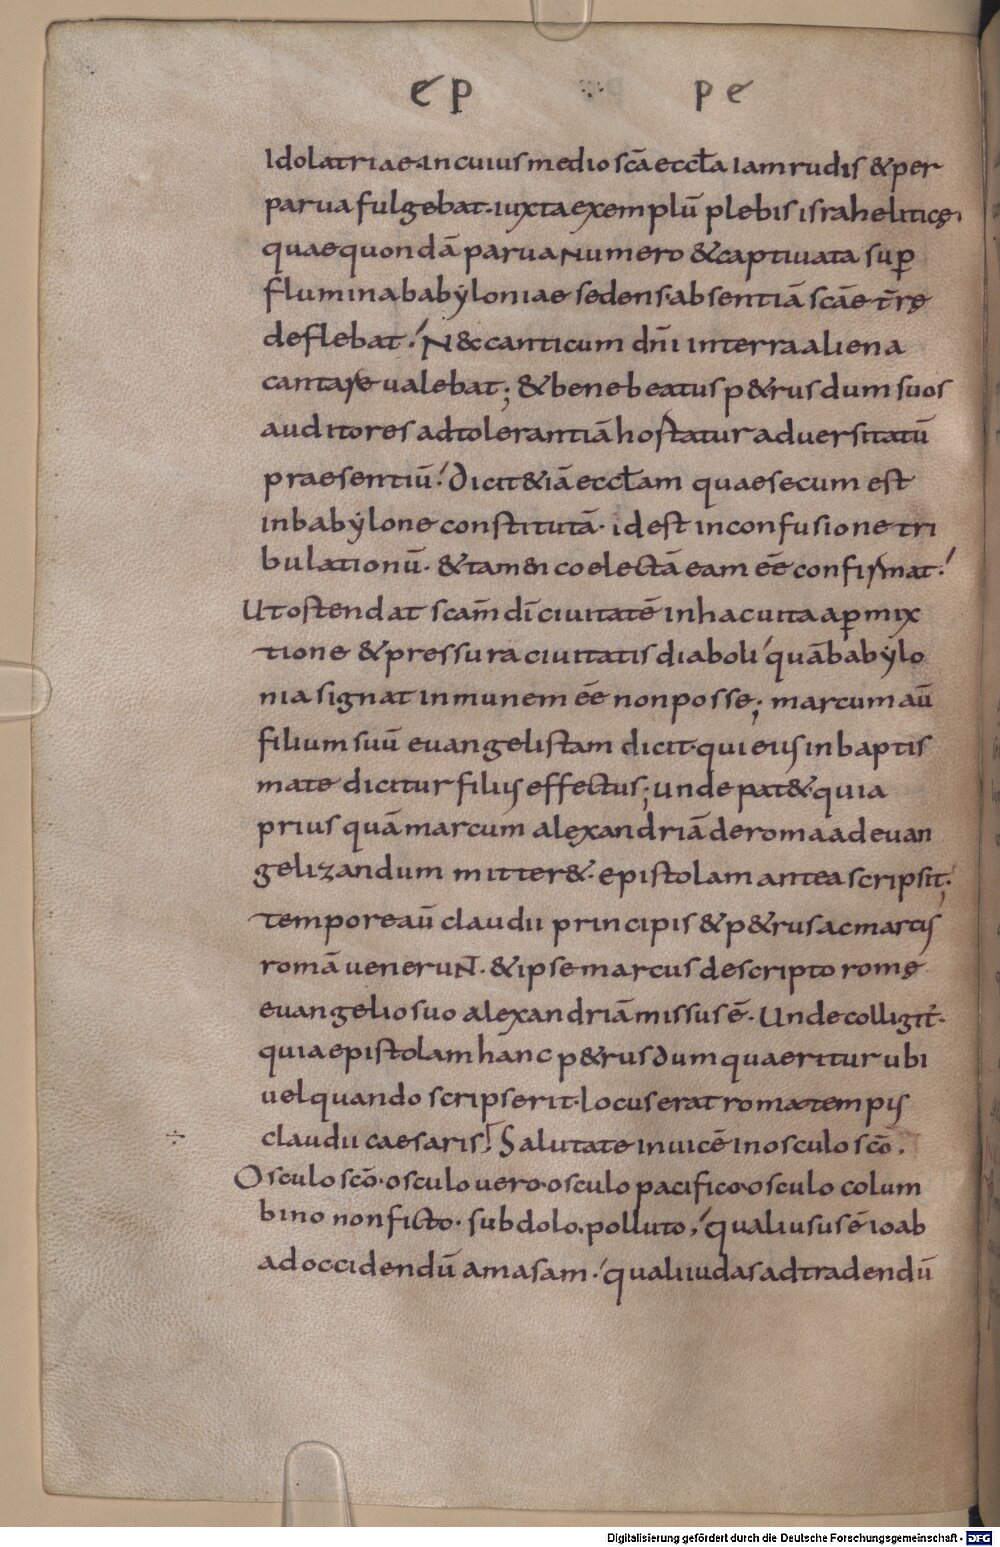 ep pe
Idolatriae. In cuius medio scā eccła Iam rudis & per
parua fulgebat. iuxta exemplū plebis israheliticę,
quae quondā parua Numero & captiuata sup̄
flumina babẏloniae sedens. absentiā scāe t̄rę
deflebat. N& canticum dn̄i in terra aliena
cantare ualebat; & bene beatus p&rus dum suos
auditores ad tolerantiā hostatur aduersitatū
praesentiū. Dicit & iā eccłam quae secum est
in babẏlone constitutā. id est in confusione tri
bulationū. & tam&n coelectā eam eē confirmat.
Ut ostendat scam̄ dī ciuitatē in hac uita ap̄mix
tione & pressura ciuitatis diaboli quā babẏlo
nia signat inmunem eē non posse; marcum aū
filium suū euangelistam dicit. qui eius in baptis
mate dicitur filius effectus; unde pat&. quia
prius quā marcum alexandriā de roma ad euan
gelizandum mitter&. epistolam antea scripsit;
tempore aū claudii principis & p&rus ac marcus
romā uenerūN. & ipse marcus descripto romę
euangelio suo alexandriā missus ē. Unde colligit̄.
quia epistolam hanc p&rus dum quaeritur ubi
uel quando scripserit. locus erat roma. tempus
claudii caesaris; Salutate inuicē in osculo scō.
Osculo scō. osculo uero. osculo pacifico. osculo colum
bino non ficto. subdolo. polluto. quali usus ē ioab
ad occidendū amasam. quali iudas ad tradendū
Digitalisierung gefördert durch die Deutsche Forschungsgemeinschaft - DFG